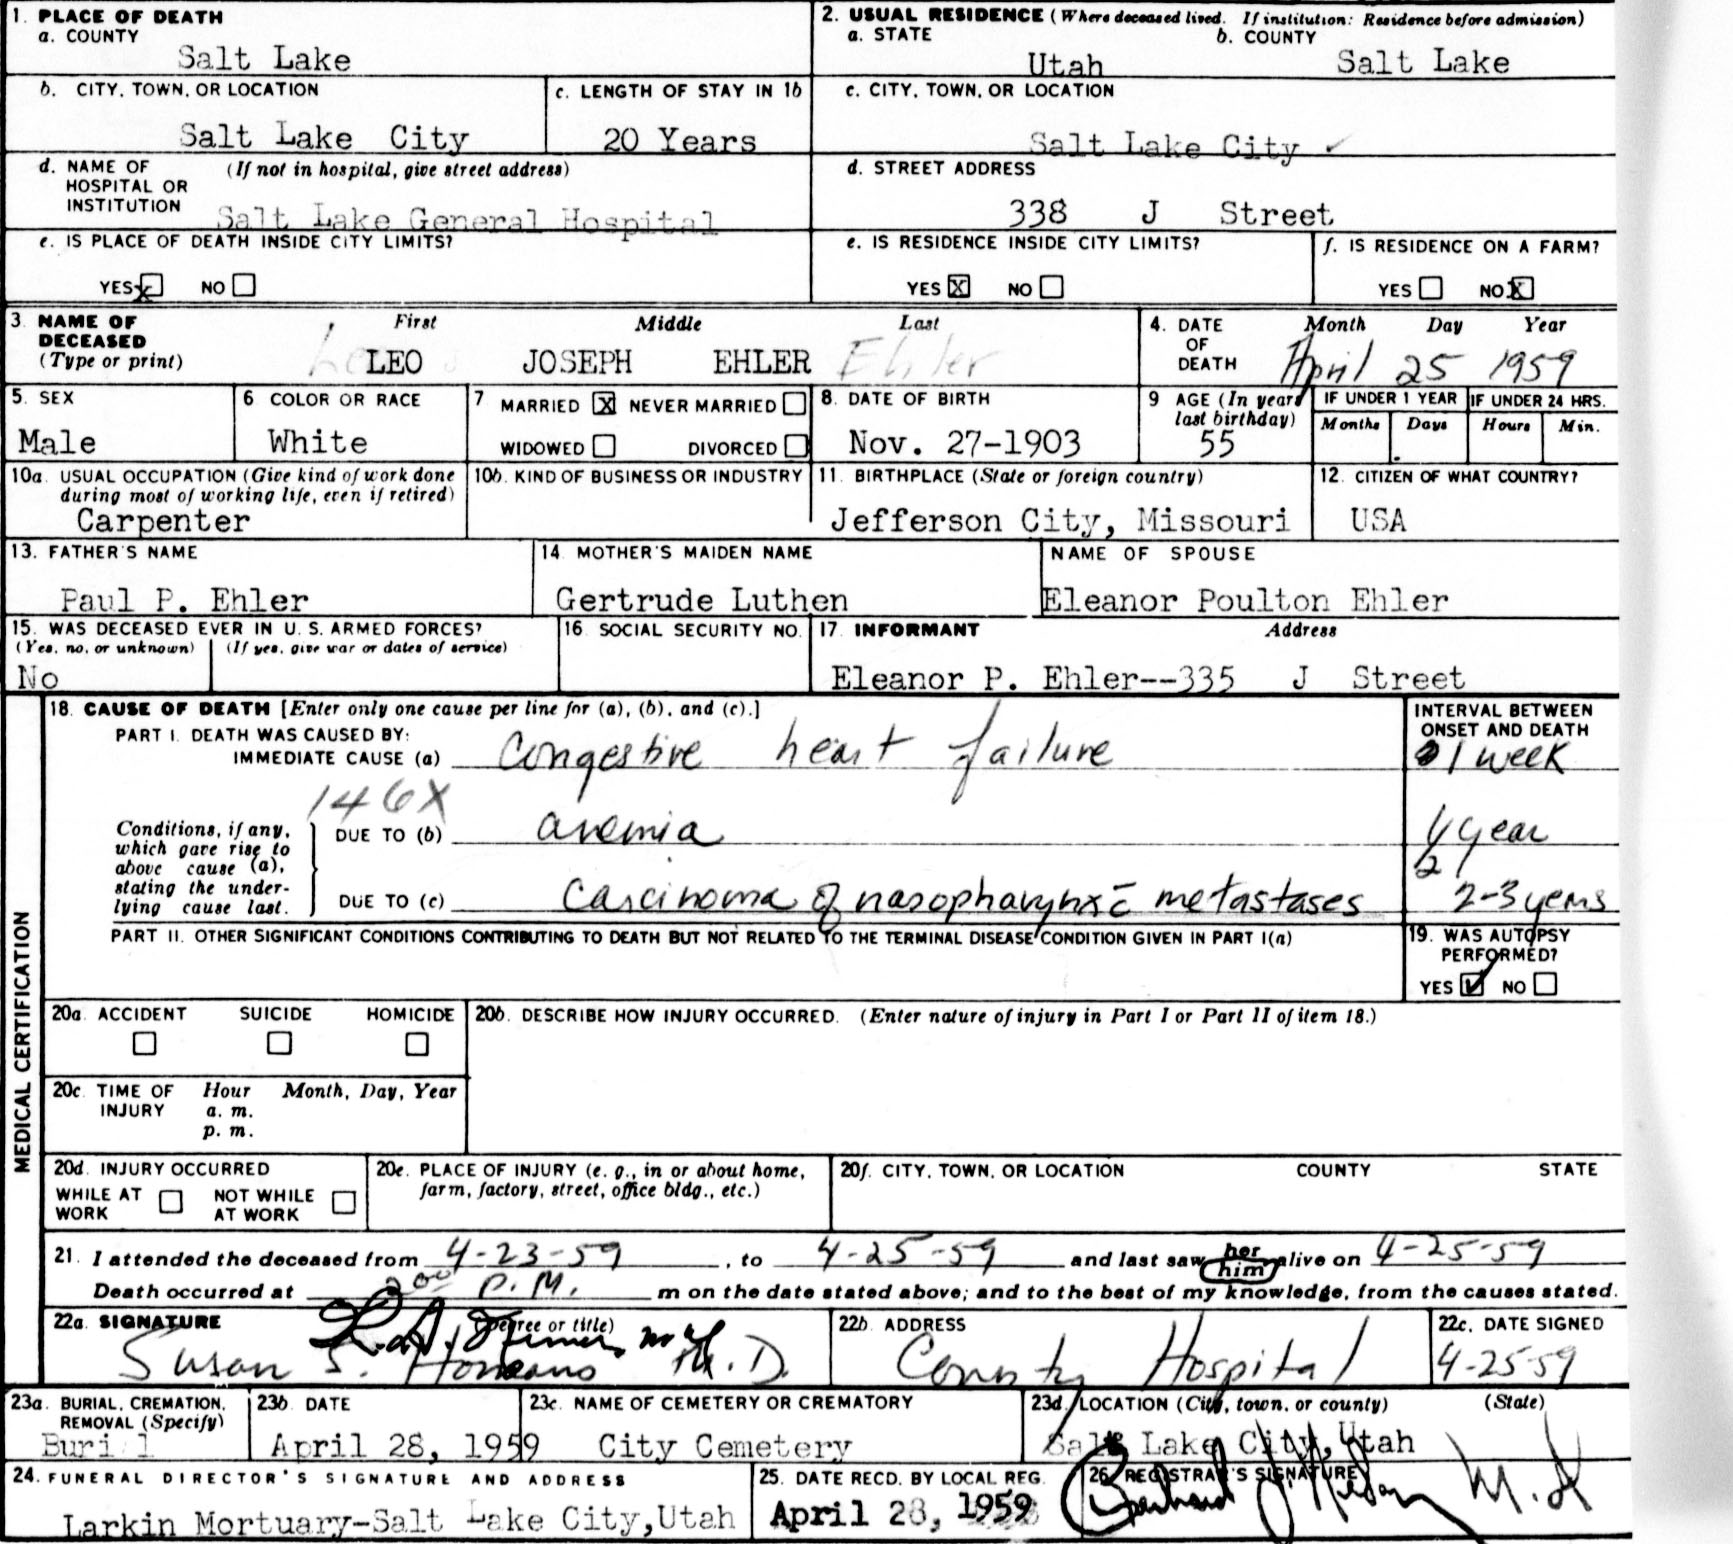 1. PLACE OF DEATH
a. COUNTY
Salt Lake
2. USUAL RESIDENCE (Where deceased lived. If institution: Residence before admission)
a. STATE b. COUNTY
Utah Salt Lake
b. CITY, TOWN, OR LOCATION
Salt Lake City
c. LENGTH OF STAY IN 1b
20 Years
c. CITY, TOWN, OR LOCATION
Salt Lake City
d. NAME OF (If not in hospital, give street address)
HOSPITAL OR
INSTITUTION Salt Lake General Hospital
d. STREET ADDRESS
338 J Street
e. IS PLACE OF DEATH INSIDE CITY LIMITS?
YES X NO
e. IS RESIDENCE INSIDE CITY LIMITS?
YES X NO
f. IS RESIDENCE ON A FARM?
YES NO X
3. NAME OF First Middle Last
DECEASED
(Type or print) LEO JOSEPH EHLER Ehler
4. DATE Month Day Year
OF
DEATH April 25 1959
5. SEX
Male
6 COLOR OR RACE
White
7 MARRIED X NEVER MARRIED
WIDOWED DIVORCED
8. DATE OF BIRTH
Nov. 27-1903
9 AGE (In years
last birthday)
55
IF UNDER 1 YEAR IF UNDER 24 HRS.
Months Days Hours Min.
10a. USUAL OCCUPATION (Give kind of work done
during most of working life, even if retired)
Carpenter
10b. KIND OF BUSINESS OR INDUSTRY
11. BIRTHPLACE (State or foreign country)
Jefferson City, Missouri
12. CITIZEN OF WHAT COUNTRY?
USA
13. FATHER'S NAME
Paul P. Ehler
14. MOTHER'S MAIDEN NAME
Gertrude Luthen
NAME OF SPOUSE
Eleanor Poulton Ehler
15. WAS DECEASED EVER IN U. S. ARMED FORCES?
(Yes, no, or unknown) (If yes, give war or dates of service)
No
16. SOCIAL SECURITY NO.
17. INFORMANT Address
Eleanor P. Ehler--335 J Street
MEDICAL CERTIFICATION
18. CAUSE OF DEATH [Enter only one cause per line for (a), (b), and (c).]
PART I. DEATH WAS CAUSED BY:
IMMEDIATE CAUSE (a) Congestive heart failure
INTERVAL BETWEEN
ONSET AND DEATH
1 week
146X
Conditions, if any,
which gave rise to
above cause (a),
stating the under-
lying cause last.
DUE TO (b) anemia
year
DUE TO (c) Carcinoma of nasopharynx c̄ metastases
2-3 years
PART II. OTHER SIGNIFICANT CONDITIONS CONTRIBUTING TO DEATH BUT NOT RELATED TO THE TERMINAL DISEASE CONDITION GIVEN IN PART I(a)
19. WAS AUTOPSY
PERFORMED?
YES ✓ NO
20a. ACCIDENT SUICIDE HOMICIDE
20b. DESCRIBE HOW INJURY OCCURRED. (Enter nature of injury in Part I or Part II of item 18.)
20c. TIME OF Hour Month, Day, Year
INJURY a. m.
p. m.
20d. INJURY OCCURRED
WHILE AT NOT WHILE
WORK AT WORK
20e. PLACE OF INJURY (e. g., in or about home,
farm, factory, street, office bldg., etc.)
20f. CITY, TOWN, OR LOCATION COUNTY STATE
21. I attended the deceased from 4-23-59, to 4-25-59 and last saw her him alive on 4-25-59
Death occurred at 2:00 P.M. m on the date stated above; and to the best of my knowledge, from the causes stated.
22a. SIGNATURE (Degree or title)
Susan S. M.D.
22b. ADDRESS
County Hospital
22c. DATE SIGNED
4-25-59
23a. BURIAL, CREMATION,
REMOVAL (Specify)
Burial
23b. DATE
April 28, 1959
23c. NAME OF CEMETERY OR CREMATORY
City Cemetery
23d. LOCATION (City, town, or county) (State)
Salt Lake City, Utah
24. FUNERAL DIRECTOR'S SIGNATURE AND ADDRESS
Larkin Mortuary-Salt Lake City, Utah
25. DATE RECD. BY LOCAL REG.
April 28, 1959
26. REGISTRAR'S SIGNATURE